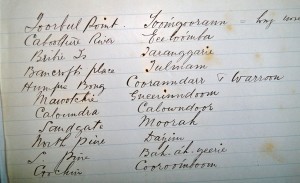 Toorbul Point Toomgoorann = long
Caboolture River Eeloomba
Bribie Is Taranggarie
Bancroft's place Tulmam
Humpie Bong Cooranndarr & Warroon
Maroochie Gueerinndoom
Caloundra Calowndoor
Sandgate Moorah
North Pine Dayim
S. Pine Bah-ah-geerie
Cochin Cooroomboom